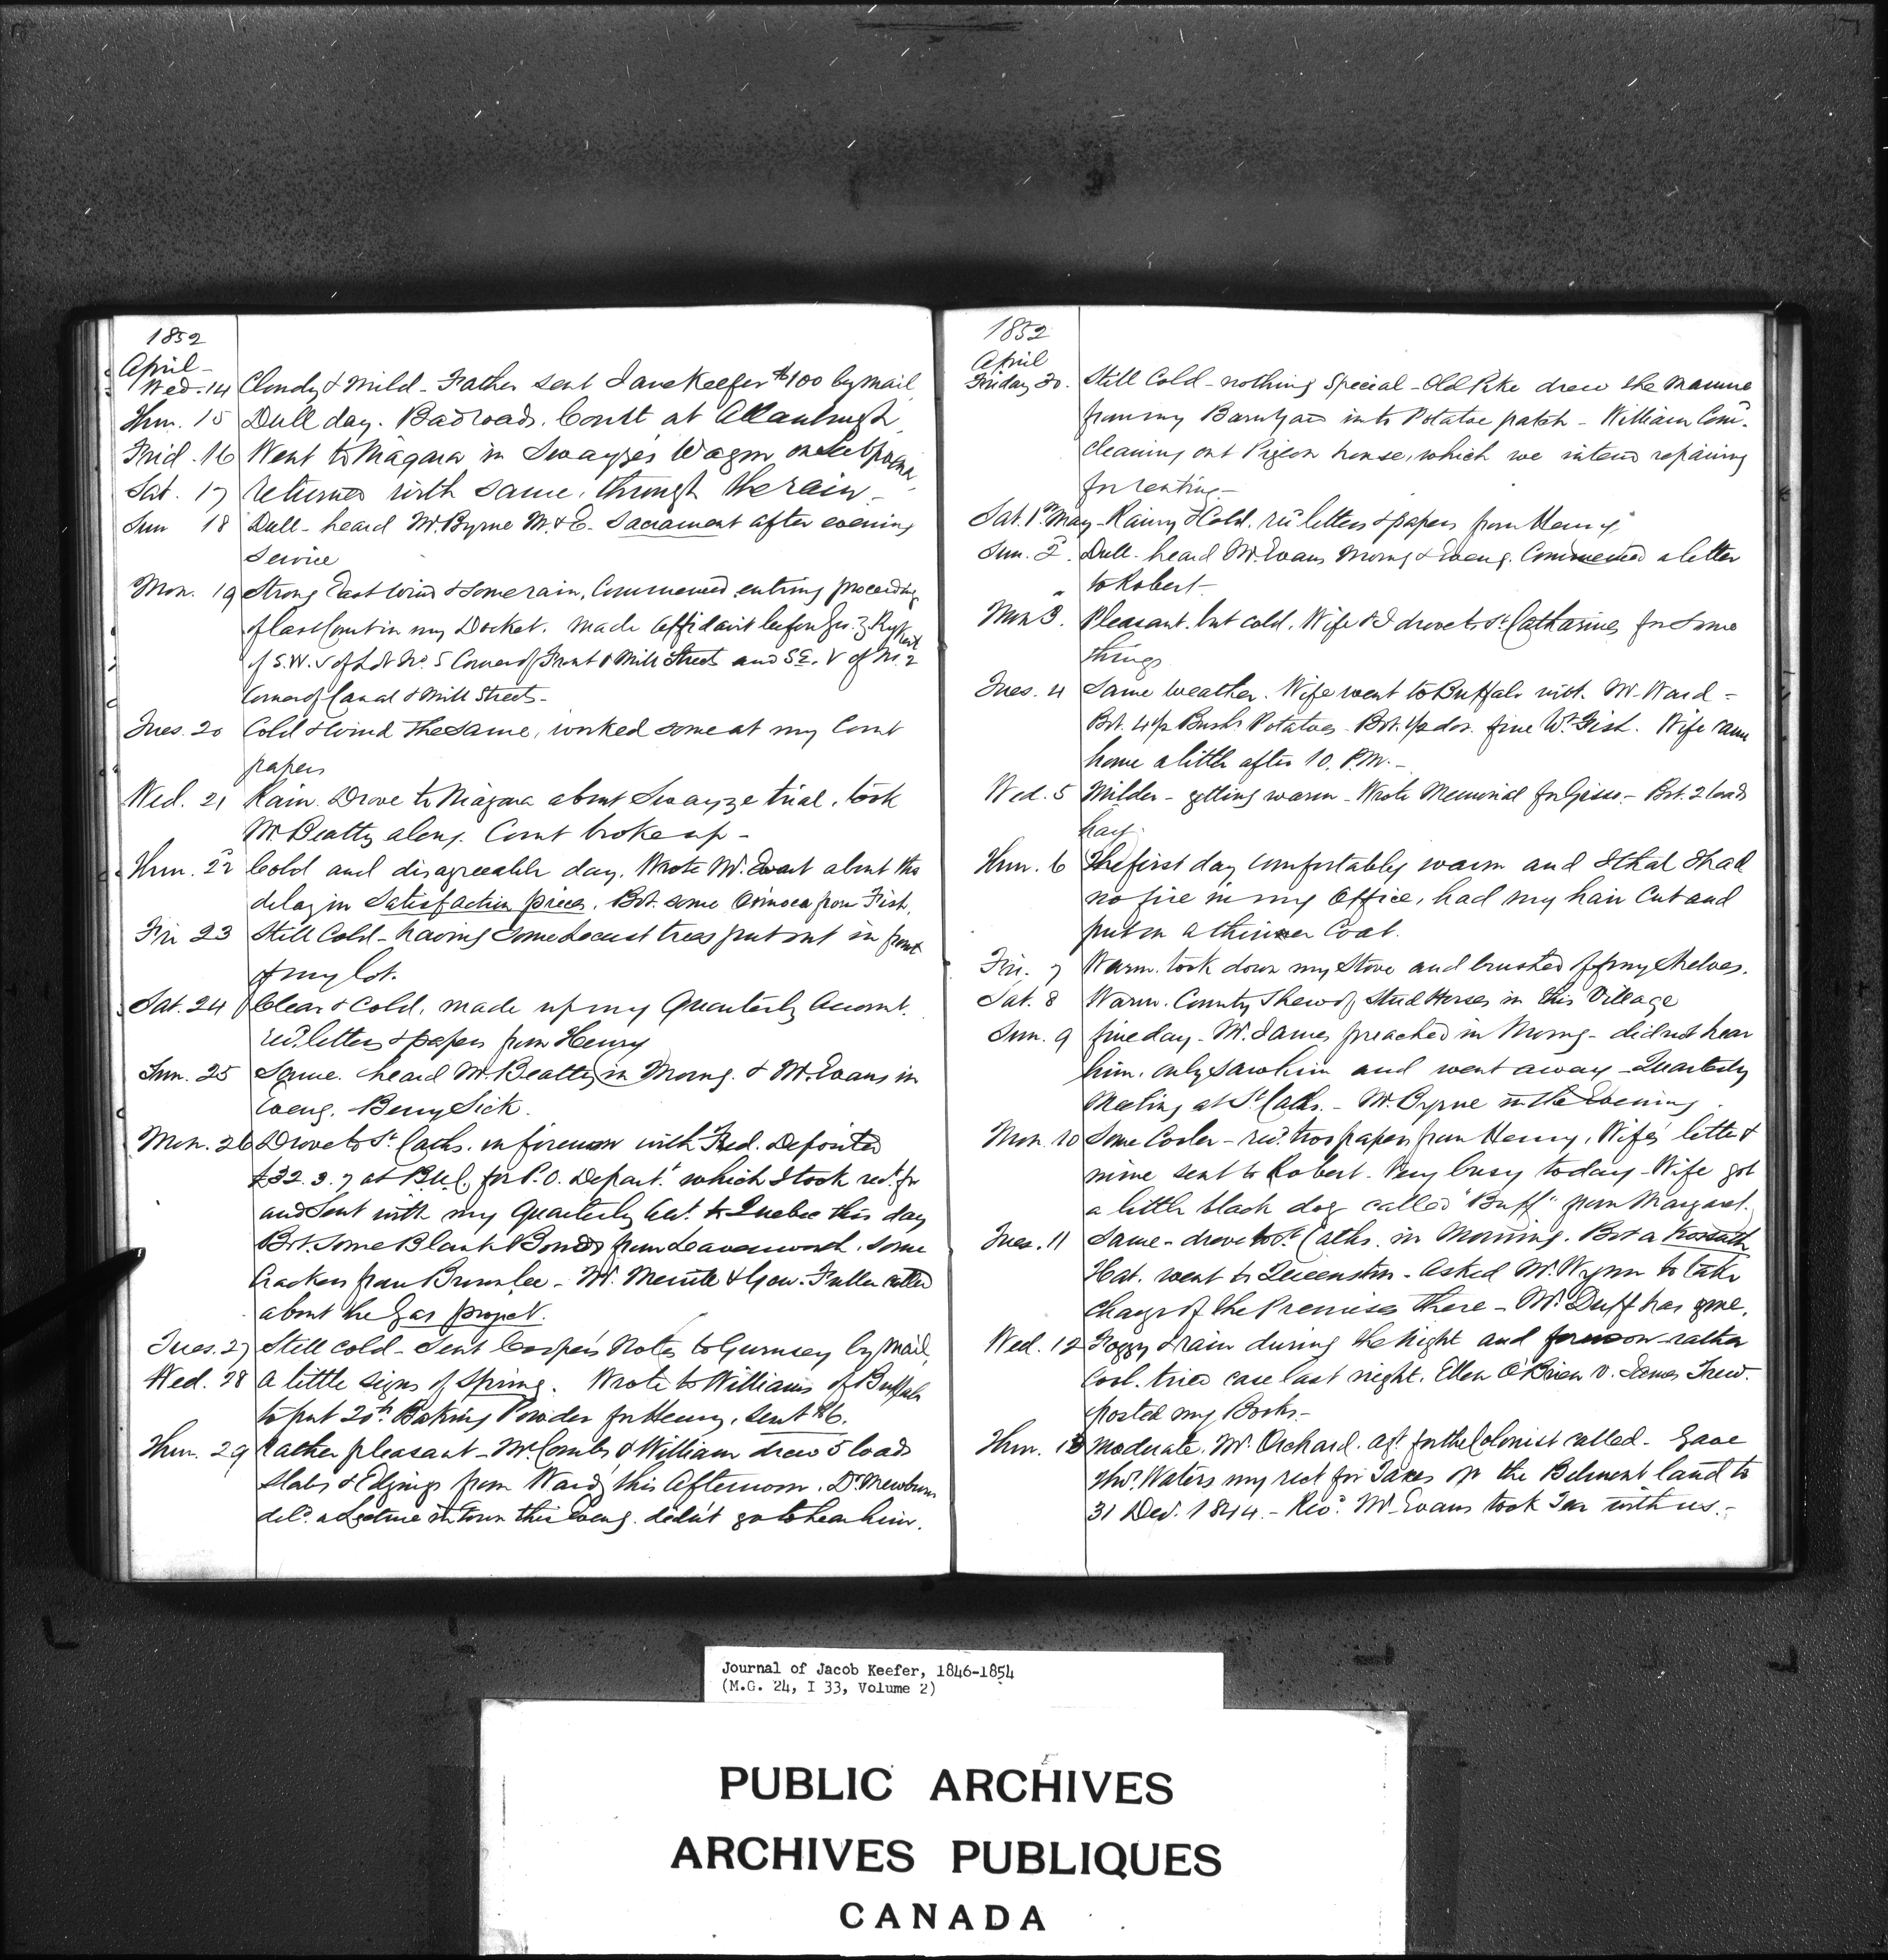 1852
April -
Wed. 14 Cloudy & Mild - Father sent Jane Keefer $100 by mail
Thur. 15 Dull day. Bad roads. Court at Allanburgh
Frid. 16 Went to Niagara in Swayze's Wagon on Subpoena
Sat. 17 returned with same, through the rain -
Sun 18 Dull - heard Mr. Byrne M. & E. Sacrament after evening
Service
Mon. 19 Strong East Wind & some rain, Commenced entring proceeding
of last Court in my Docket. Made affidavit before Geo.
of S.W. of Lot No. 5 Corner of Front & Mill Streets and S.E. of No. 2
Corner of Canal & Mill Streets -
Tues. 20 Cold & Wind the same, worked some at my Court
papers
Wed. 21 Rain. Drove to Niagara about Swayze trial, took
Mr. Beatty along. Court broke up -
Thur. 22 Cold and disagreeable day. Wrote Mr. Ewart about the
delay in Satisfaction pieces. Bot. some from Fish.
Fri 23 Still Cold - having some Locust trees put out in front
of my lot.
Sat. 24 Clear & Cold, made up my Quarterly Account.
recd. letters & papers from Henry
Sun. 25 Same. heard Mr. Beatty in Morng. & Mr. Evans in
Eveng. Berry Sick.
Mon. 26 Drove to St. Caths. in forenoon with Fred. Deposited
£32.3.7 at B.U.C. for P.O. Depart. which I took rect. for
and Sent with my Quarterly Act. to Quebec this day
Bot. Some Blank Bonds from Leavenworth, some
Crackers from Brownlee - Mr. Merritt & Geo. Fuller called
about the Gas project.
Tues. 27 Still cold - Sent Cooper's Notes to Gurnsey by Mail,
Wed. 28 A little signs of Spring. Wrote to Williams of Buffalo
to put 20 lb. Baking Powder for Henry, sent $6.
Thur. 29 rather pleasant - McCombs & William drew 5 loads
Slabs & Edgings from Ward's this Afternoon. Dr. Mewburn
deld. a Lecture in town this Eveng. didn't go to hear him.
1852
April
Friday 30. Still Cold - nothing Special - Old Pike drew the manure
from my Barnyard into Potatoe patch - William Com.
Cleaning out Pigeon house, which we intend repairing
for renting -
Sat. 1st May - Rainy & Cold. recd. letters & papers from Henry
Sun. 2. Dull - heard Mr. Evans Morng & Eveng. Commenced a letter
to Robert -
Mon 3. Pleasant. but cold. Wife & I drove to St. Catharines for some
things
Tues. 4 Same weather. Wife went to Buffalo with Mr. Ward -
Bot. 4 1/2 Bush. Potatoes - Bot. 1/2 doz. fine Wt. Fish. Wife came
home a little after 10. P.M. -
Wed. 5 Milder - getting warm - Wrote Memorial for - Bot. 2 loads
hay.
Thur. 6 The first day comfortably warm and I that I had
no fire in my Office, had my hair Cut and
put on a thinner Coat.
Fri. 7 Warm. took down my Stove and brushed off my shelves.
Sat. 8 Warm. County Shew of Stud Horses in this Village
Sun. 9 fine day - Mr. James preached in Morng - did not hear
him. only saw him and went away - Quarterly
Meeting at St. Caths. - Mr. Byrne in the Evening.
Mon. 10 Some Cooler - recd. two papers from Henry, Wife's letter &
mine sent to Robert. Very busy today - Wife got
a little black dog called "Buff" from Margaret.
Tues. 11 Same - drove to St. Caths. in Morning. Bot a Kossuth
Hat. went to Queenston. Asked Mr. Wynn to take
charge of the Premises there - Mr. Duff has gone.
Wed. 12 Foggy & rain during the Night and forenoon - rather
Cool. tried case last night. Ellen O'Brien v. James Trew.
posted my Books -
Thur. 13 Moderate. Mr. Orchard. agt. for the Colonist called - Gave
Thos. Waters my rect for Taxes on the Belmont land to
31 Decr. 1844. - Revd. Mr. Evans took Tea with us. -
Journal of Jacob Keefer, 1846-1854
(M.G. 24, I 33, Volume 2)
PUBLIC ARCHIVES
ARCHIVES PUBLIQUES
CANADA